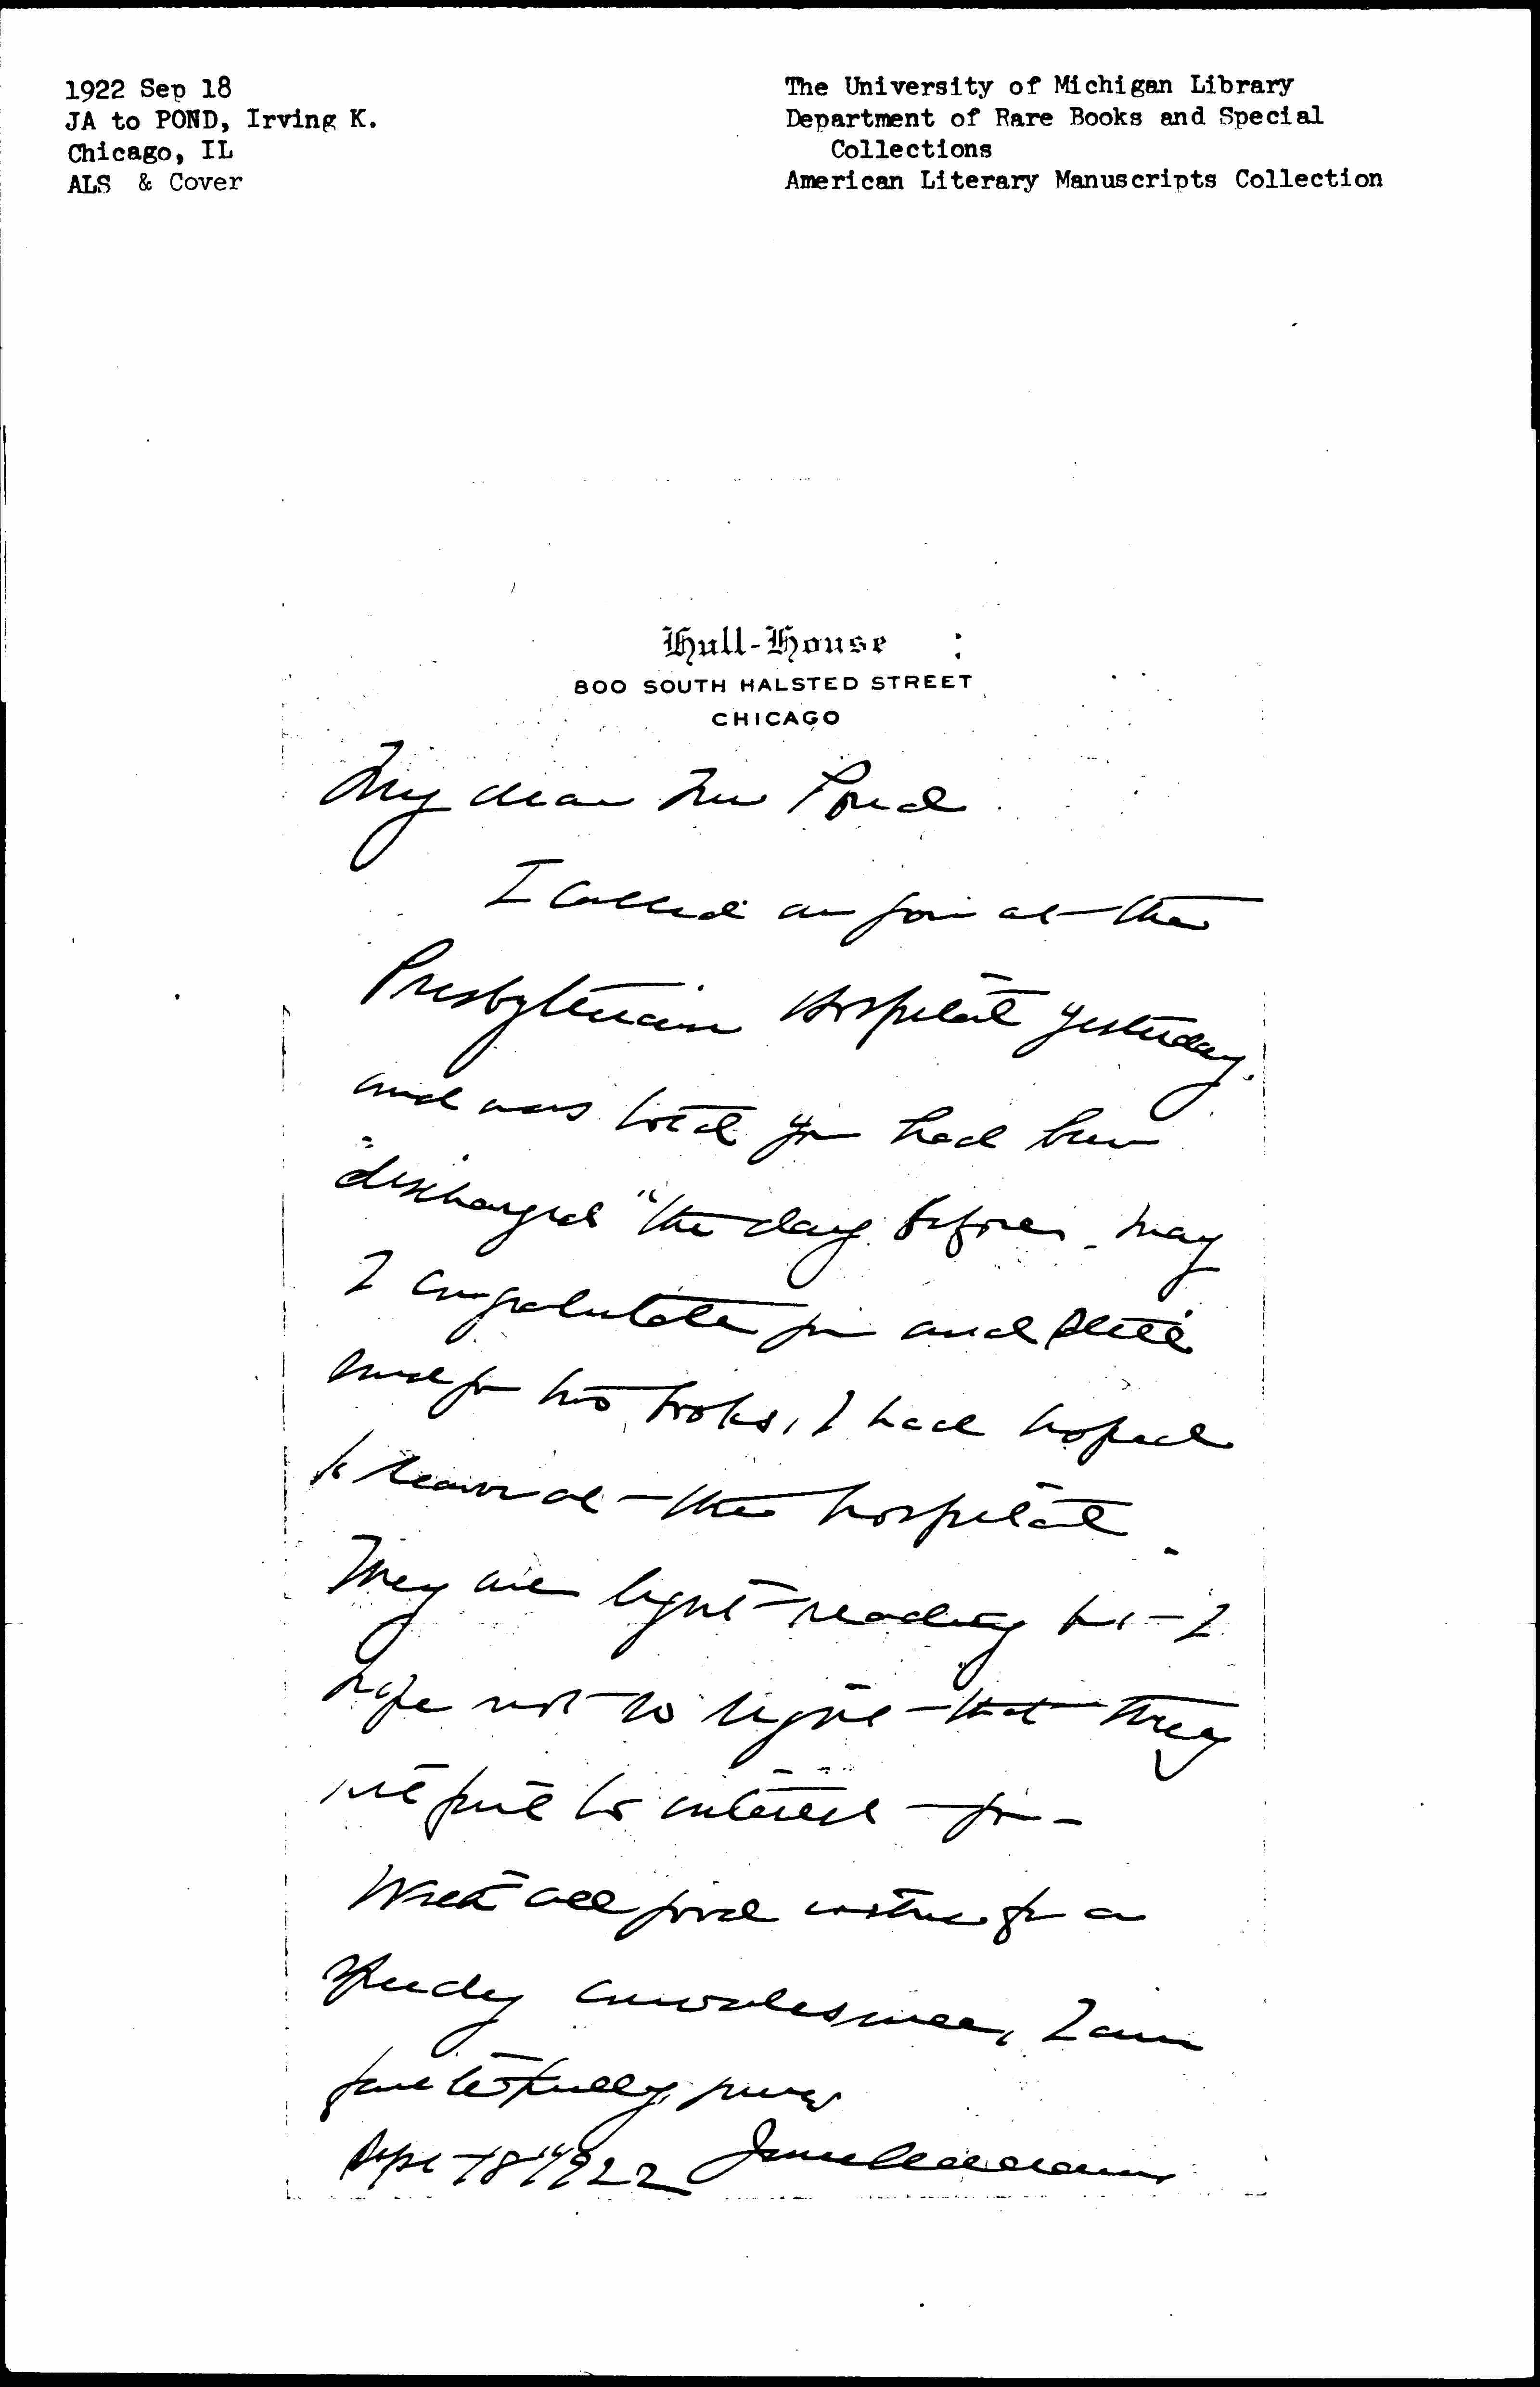 1922 Sep 18
JA to POND, Irving K.
Chicago, IL
ALS & Cover
The University of Michigan Library
Department of Rare Books and Special
Collections
American Literary Manuscripts Collection
Hull-House
800 SOUTH HALSTED STREET
CHICAGO
My dear Mr Pond
I called on you at the
Presbyterian Hospital yesterday.
and was told you had been
"discharged" the day before. May
I congratulate you and still
send you two books, I had hoped
to leave at the hospital.
They are light reading but I
hope not so light that they
will fail to interest you -
With all good wishes for a
speedy convalescence, I am
faithfully yours
Sept 18" 1922 Jane Addams